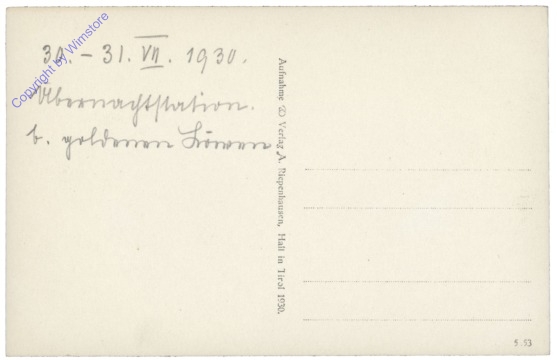 30. - 31. VII. 1930.
Übernachtstation.
b. goldenen Löwen
Aufnahme & Verlag A. Riepenhausen, Hall in Tirol 1930.
5.53
Copyright by Wimstore